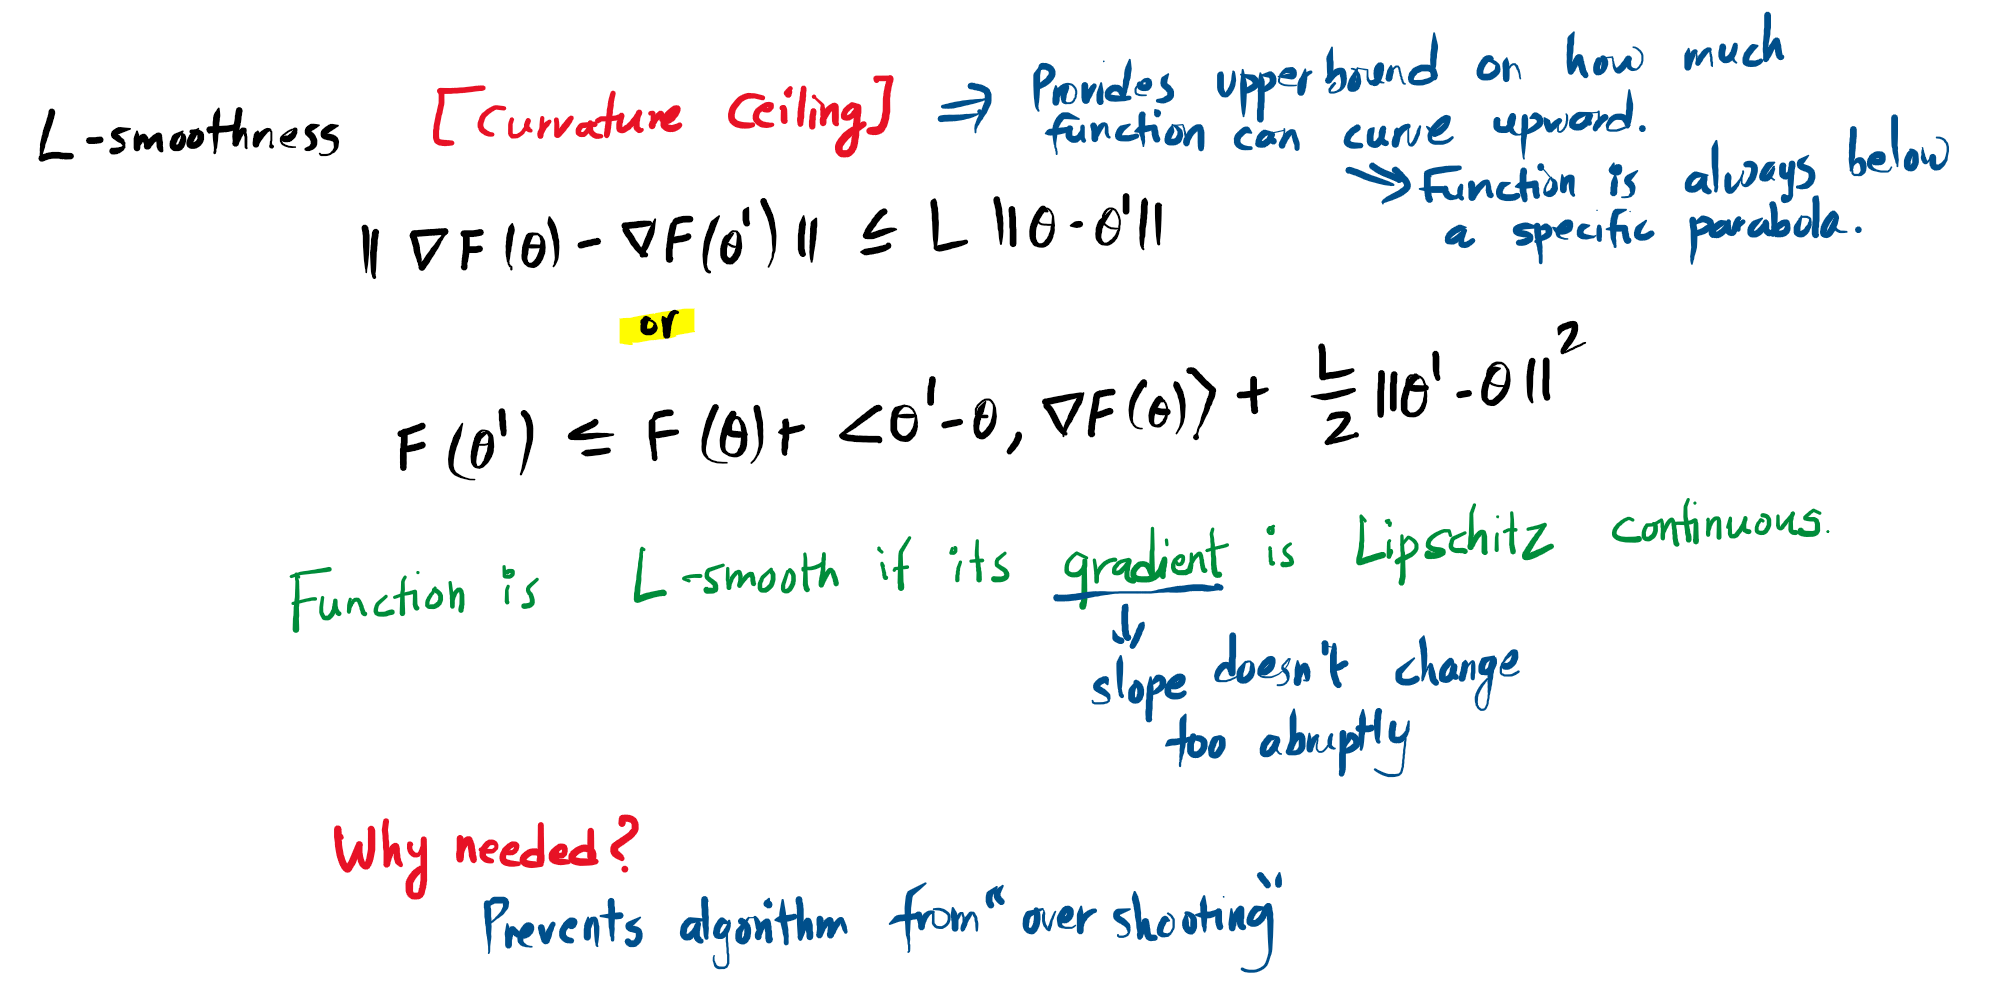 L-smoothness [Curvature Ceiling] ⇒ Provides upper bound on how much
function can curve upward.
⇒ Function is always below
a specific parabola.
‖∇F(θ) - ∇F(θ')‖ ≤ L ‖θ - θ'‖
or
F(θ') ≤ F(θ) + <θ' - θ, ∇F(θ)> + L/2 ‖θ' - θ‖²
Function is L-smooth if its gradient is Lipschitz continuous.
↓
slope doesn't change
too abruptly
Why needed?
Prevents algorithm from "over shooting"